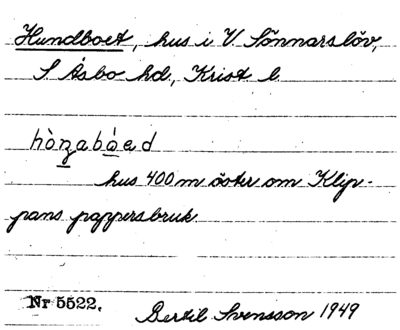 Hundboet, hus i V. Sönnarslöv,
S. Åsbo hd., Krist. l.
hònzabóed
hus 400 m öster om Klip-
pans pappersbruk.
Nr 5522. Bertil Svensson 1949